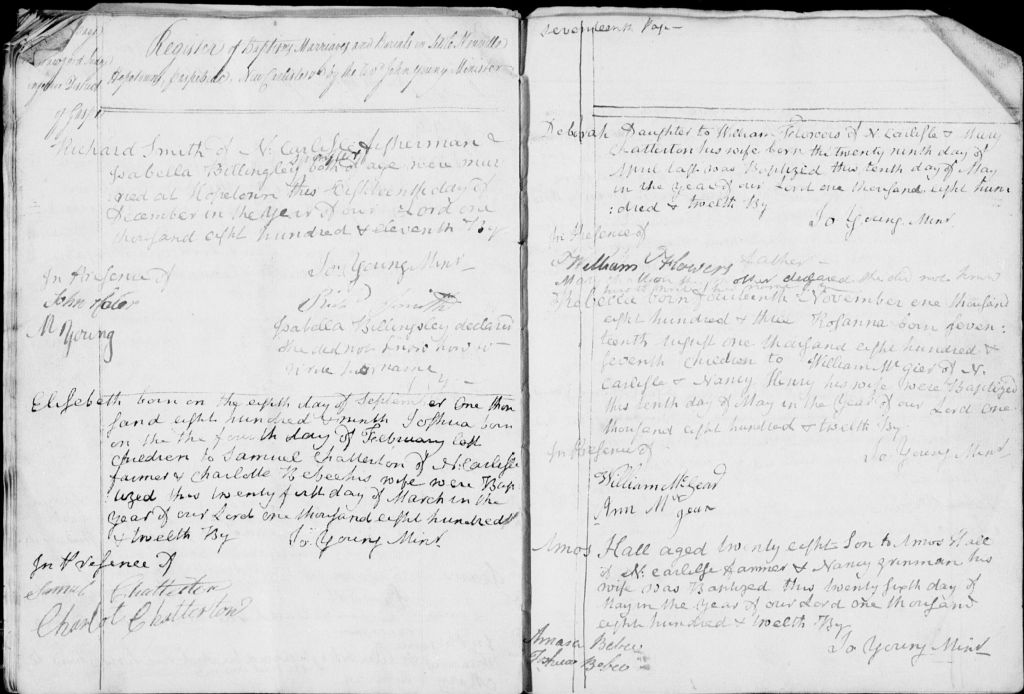 Register of Baptisms Marriages and Burials in Little Nouvelle
Hopetown, Paspebiac, New Carlisle by the Revd John Young Minister
District
of Gaspe
Richard Smith of N. Carlisle fisherman &
Isabella Billingsley both of age were mar
ried at Hopetown this Eighteenth day of
December in the Year of our Lord one
thousand eight hundred & eleventh By
Jo: Young Mint.
In Presence of
John
M Young
Richd Smith
Isabella Billingsley declared
she did not know how to
write her name
Elisebeth born on the eighth day of September One thou
sand eight hundred & ninth Joshua born
on the the fourth day of February last
Children to Samuel Chatterton of N. Carlisle
farmer & Charlotte Beebe his wife were Bap
tized this twenty first day of March in the
Year of our Lord one thousand eight hundred
& twelth By Jo. Young Mint.
In Presence of
Samul Chatterton
Charlot Chatterton
seventeenth Page
Deborah Daughter to William Flowers of N Carlisle & Mary
Chatterton his wife born the twenty ninth day of
April last was Baptized this tenth day of May
in the Year of our Lord one thousand eight hun
:dred & twelth By
Jo Young Mint.
In Presence of
William Flowers father
Mary Chatterton mother declared she did not know
how to write her name
Rabellia born fourteenth November one thousand
eight hundred & three Rosanna born seven:
teenth August one thousand eight hundred &
seventh Children to William McGier of N.
Carlisle & Nancy Henry his wife were Baptized
this tenth day of May in the Year of our Lord One
thousand eight hundred & twelth By
In Presence of Jo Young Mint.
William McGear
Ann McGear
Amos Hall aged twenty eight Son to Amos Hall
of N. Carlisle farmer & Nancy his
wife was Baptized this twenty sixth day of
May in the Year of our Lord one thousand
eight hundred & twelth By
Amasa Bebee Jo Young Mint
Joshua Bebee